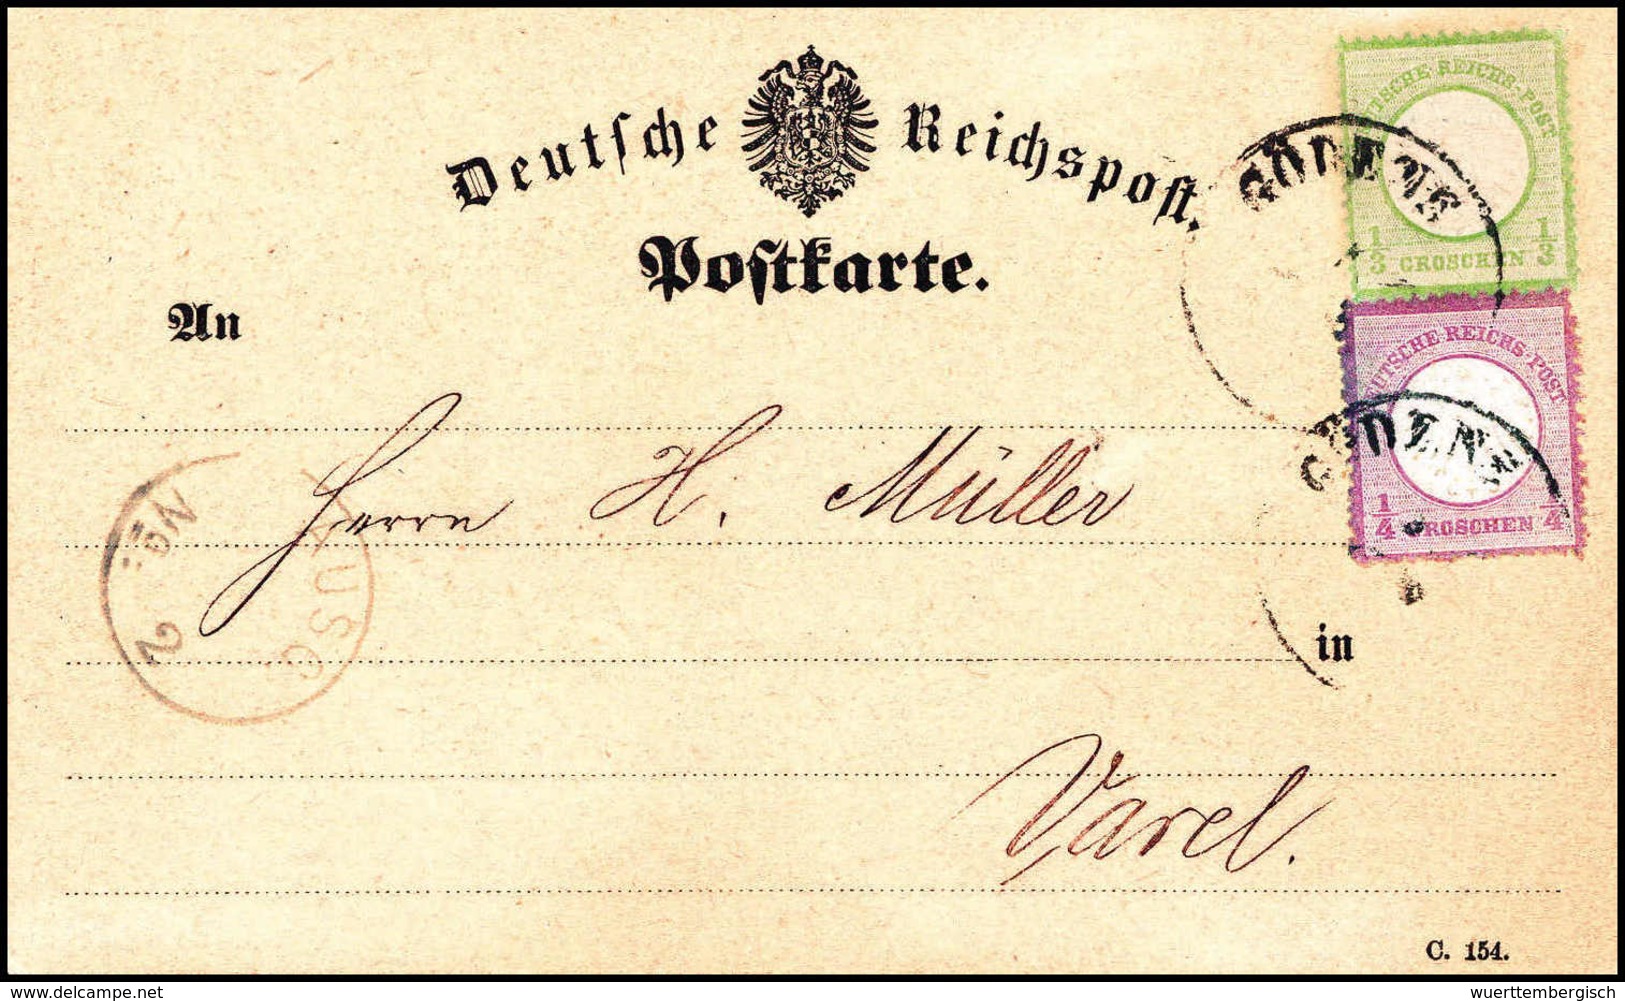 Deutsche Reichspost.
Postkarte.
An
DEUTSCHE REICHS-POST
1/3 GROSCHEN 1/3
DEUTSCHE REICHS-POST
1/4 GROSCHEN 1/4
GÖDENS
GÖDENS
Herrn H. Müller
AUSG
No. 2
in
Varel.
C. 154.
www.delcampe.net
wuerttembergisch